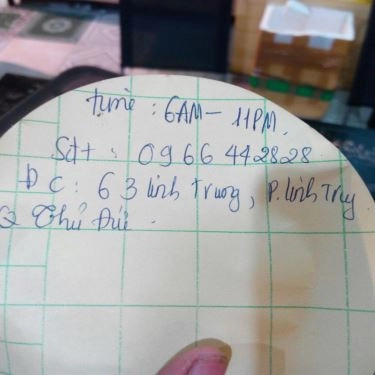 time : 6AM - 11PM.
Sdt : 0966 442828
Đ C : 63 linh Trung, P. linh Trung.
Q Thủ Đức.